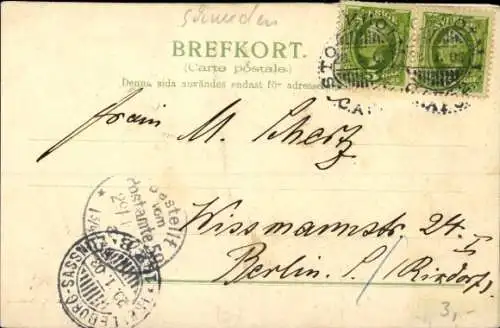 Schweden
BREFKORT.
(Carte postale.)
Denna sida användes endast för adressen
STO
C.A.
Fräulein M. Schertz
Wissmannstr. 24 I
Berlin. S./ (Rixdorf)
Bestellt
vom
Postamte 50
29/1
TRELLEBORG-SASSNITZ
29.1.03
3,-